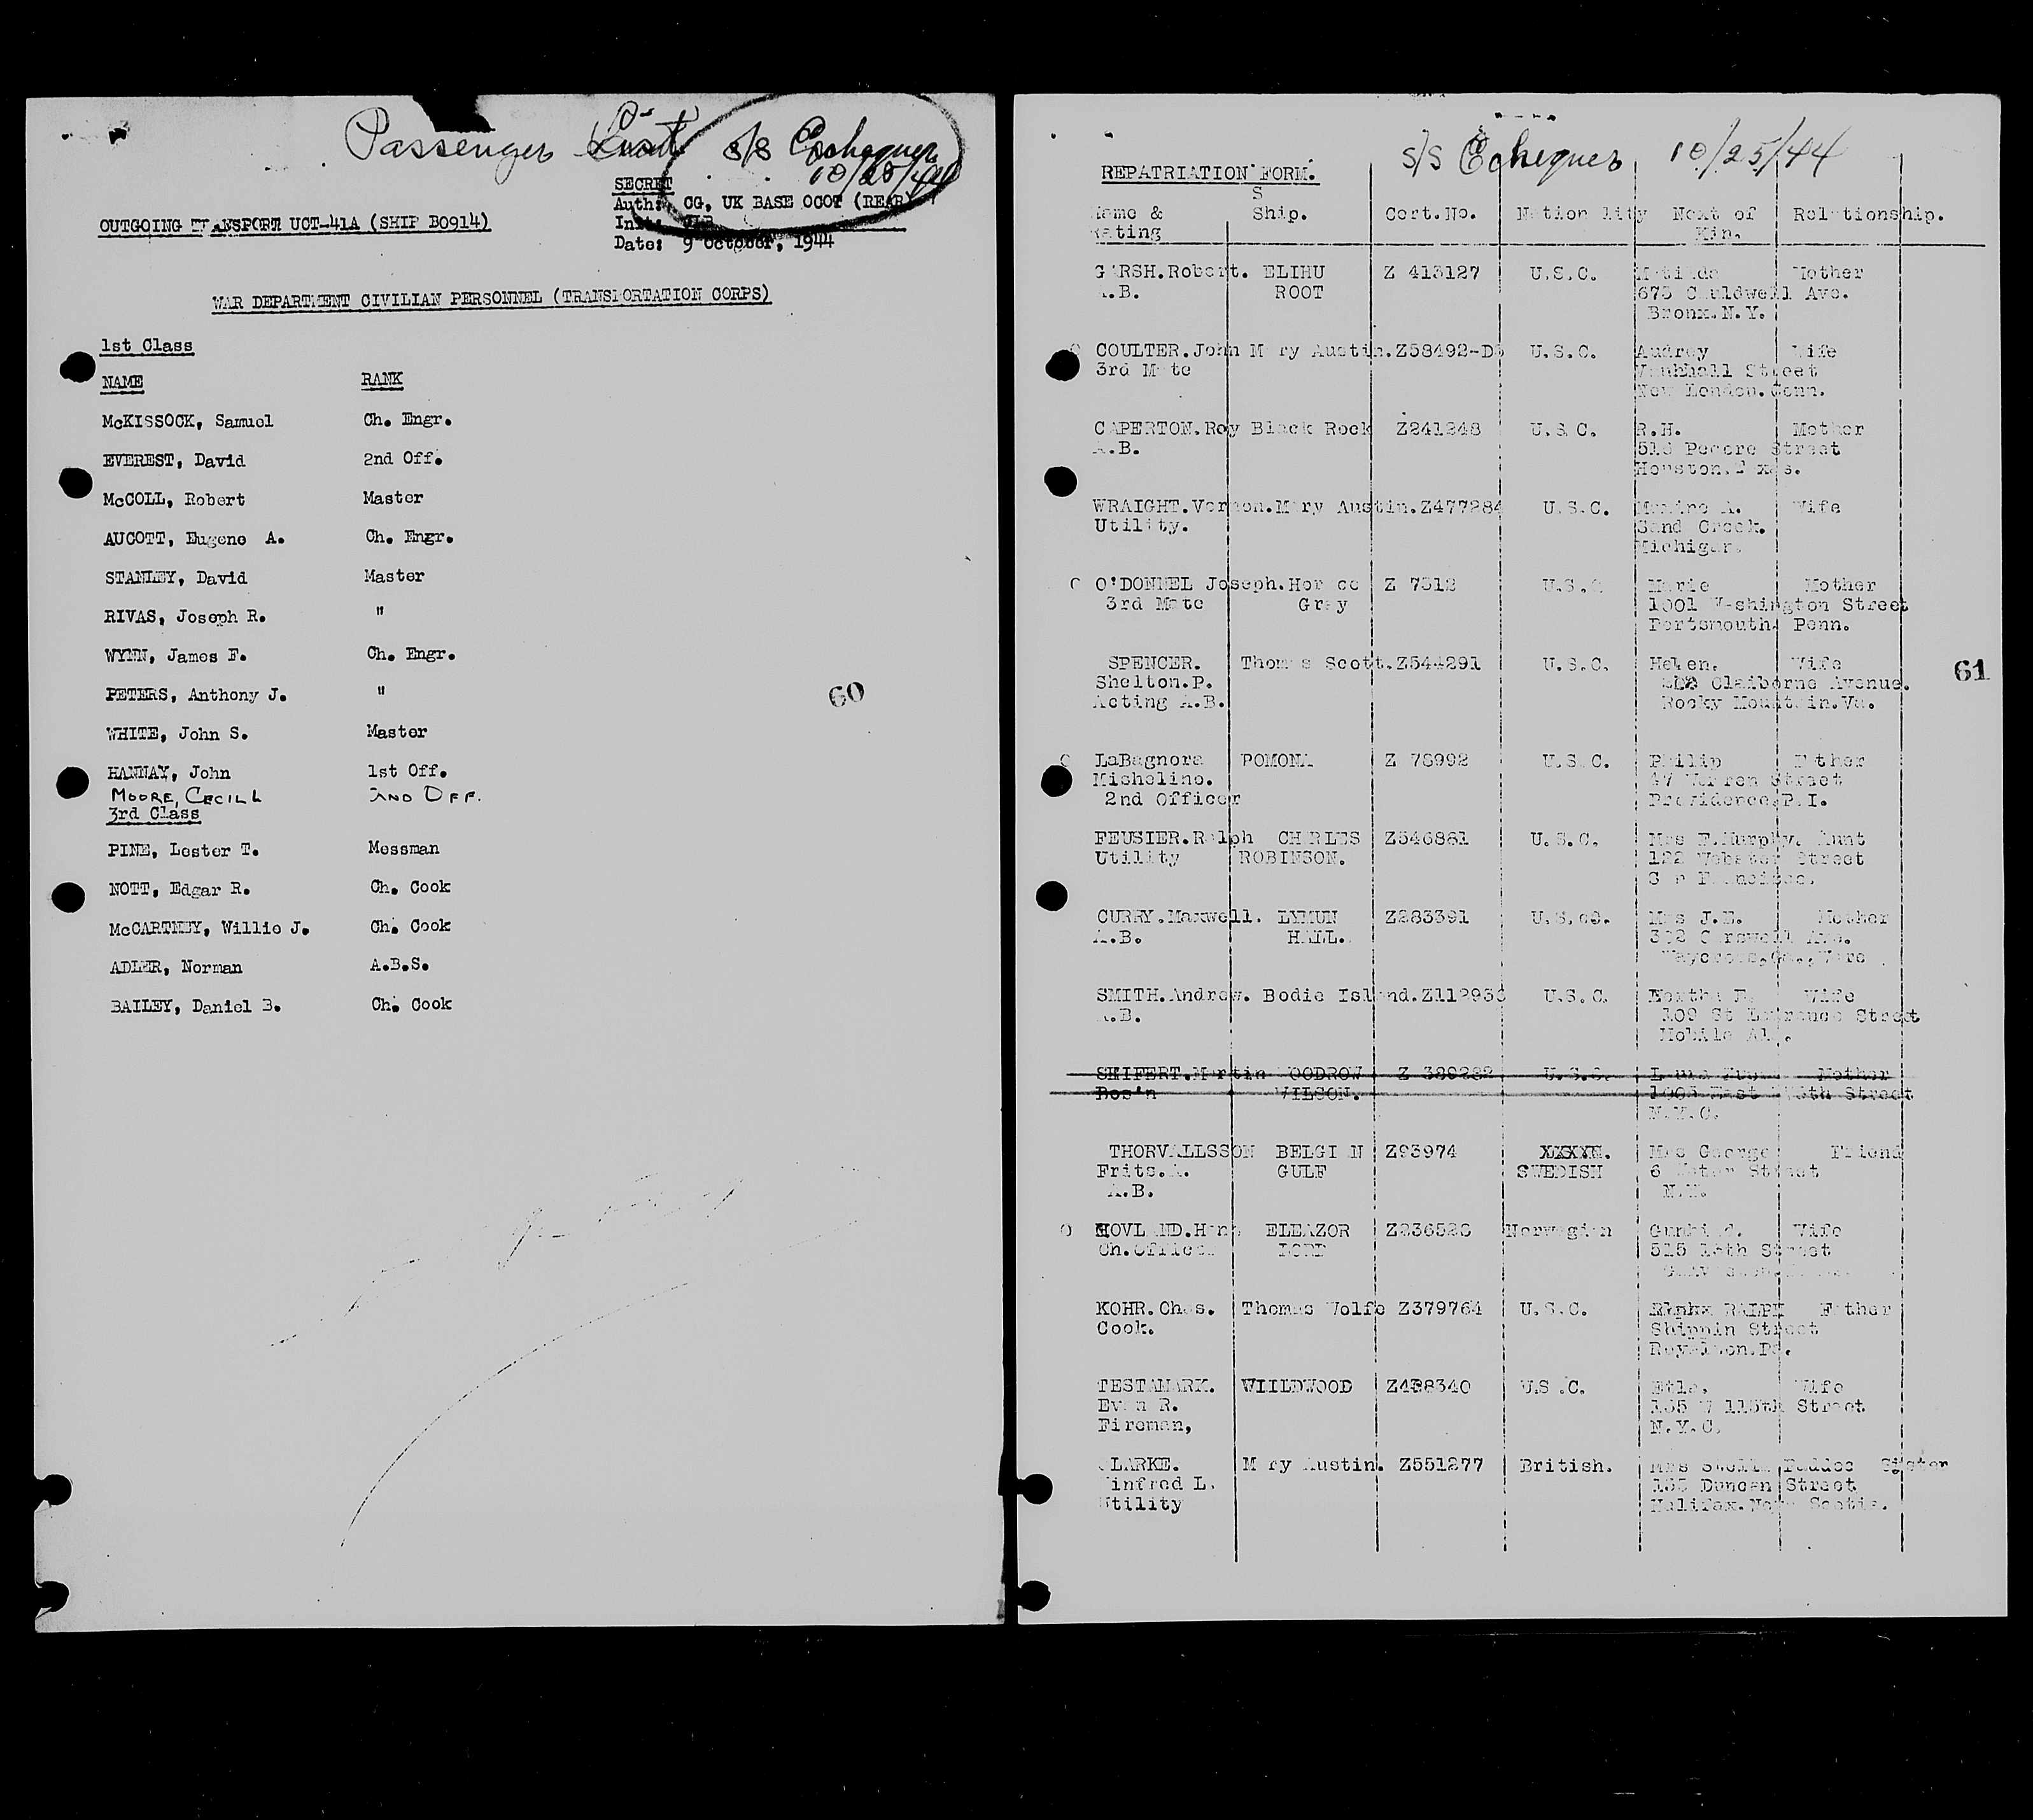 Passenger List s/s Echequer
10/25/44
SECRET
Auth: CG, UK BASE OCOT (REAR)
Init:
Date: 9 October, 1944
OUTGOING TRANSPORT UCT-41A (SHIP B0914)
WAR DEPARTMENT CIVILIAN PERSONNEL (TRANSPORTATION CORPS)
1st Class
NAME RANK
McKISSOCK, Samuel Ch. Engr.
EVEREST, David 2nd Off.
McCOLL, Robert Master
AUCOTT, Eugene A. Ch. Engr.
STANLEY, David Master
RIVAS, Joseph R. "
WYNN, James F. Ch. Engr.
PETERS, Anthony J. "
60
WHITE, John S. Master
HANNAY, John 1st Off.
MOORE, CECIL L 2ND OFF.
3rd Class
PINE, Lester T. Messman
NOTT, Edgar R. Ch. Cook
McCARTNEY, Willie J. Ch. Cook
ADLER, Norman A.B.S.
BAILEY, Daniel B. Ch. Cook
s/s Echequer 10/25/44
REPATRIATION FORM.
S
Name & Ship. Cert.No. Nationality Next of Relationship.
Rating Kin.
GARSH.Robert. ELIHU Z 413127 U.S.C. Matilda Mother
A.B. ROOT 675 Cauldwell Ave.
Bronx.N.Y.
COULTER.John Mary Austin.Z58492-D3 U.S.C. Audrey Wife
3rd Mate Vauxhall Street
New London.Conn.
CAPERTON.Roy Black Rock Z241248 U.S.C. R.H. Mother
A.B. Street
Houston.Texas.
WRAIGHT.Vernon.Mary Austin.Z477284 U.S.C. Wife
Utility. Sand Creek.
Michigan.
O O'DONNEL Joseph.Horace Z 7312 U.S.C Marie Mother
3rd Mate Gray 1001 Washington Street
Portsmouth Penn.
SPENCER. Thomas Scott.Z544291 U.S.C. Helen. Wife
Shelton.P. Claiborne Avenue.
Acting A.B. Rocky Mountain.Va.
61
O LaBagnora POMONA Z 78992 U.S.C. Philip Father
Michelino. 47 Warren Street
2nd Officer Providence.R.I.
FEUSIER.Ralph CHARLES Z546881 U.S.C. Mrs E.Murphy. Aunt
Utility ROBINSON. 122 Webster Street
San Francisco.
CURRY.Maxwell. LYMUN Z283391 U.S.C. Mrs J.E. Mother
A.B. HALL. 302 Carswell Ave.
Waycross,Ga.,Ware
SMITH.Andrew. Bodie Island. U.S.C. Wife
A.B. 109 St Lawrence Street
Mobile Ala.
SEIFERT.Martin WOODROW Z 389282 U.S.C. Mother
Bos'n WILSON. Street
N.Y.C.
THORVALLSSON BELGIAN Z93974 SWEDISH Mrs George Friend
Frits.A. GULF 6 Water Street
A.B. N.Y.
O HOVLAND.Hans ELEAZOR Z236528 Norwegian Wife
Ch.Officer LORD 515 Street
KOHR.Chas. Thomas Wolfe Z379764 U.S.C. RALPH Father
Cook. Shippin Street
Royalton.Pa.
TESTAMARK. WIILDWOOD Z438340 U.S.C. Wife
Evan R. 135 W 115th Street
Fireman, N.Y.C.
CLARKE. Mary Austin. Z551277 British. Mrs Sister
Winfred L. Duncan Street
Utility Halifax.Nova Scotia.